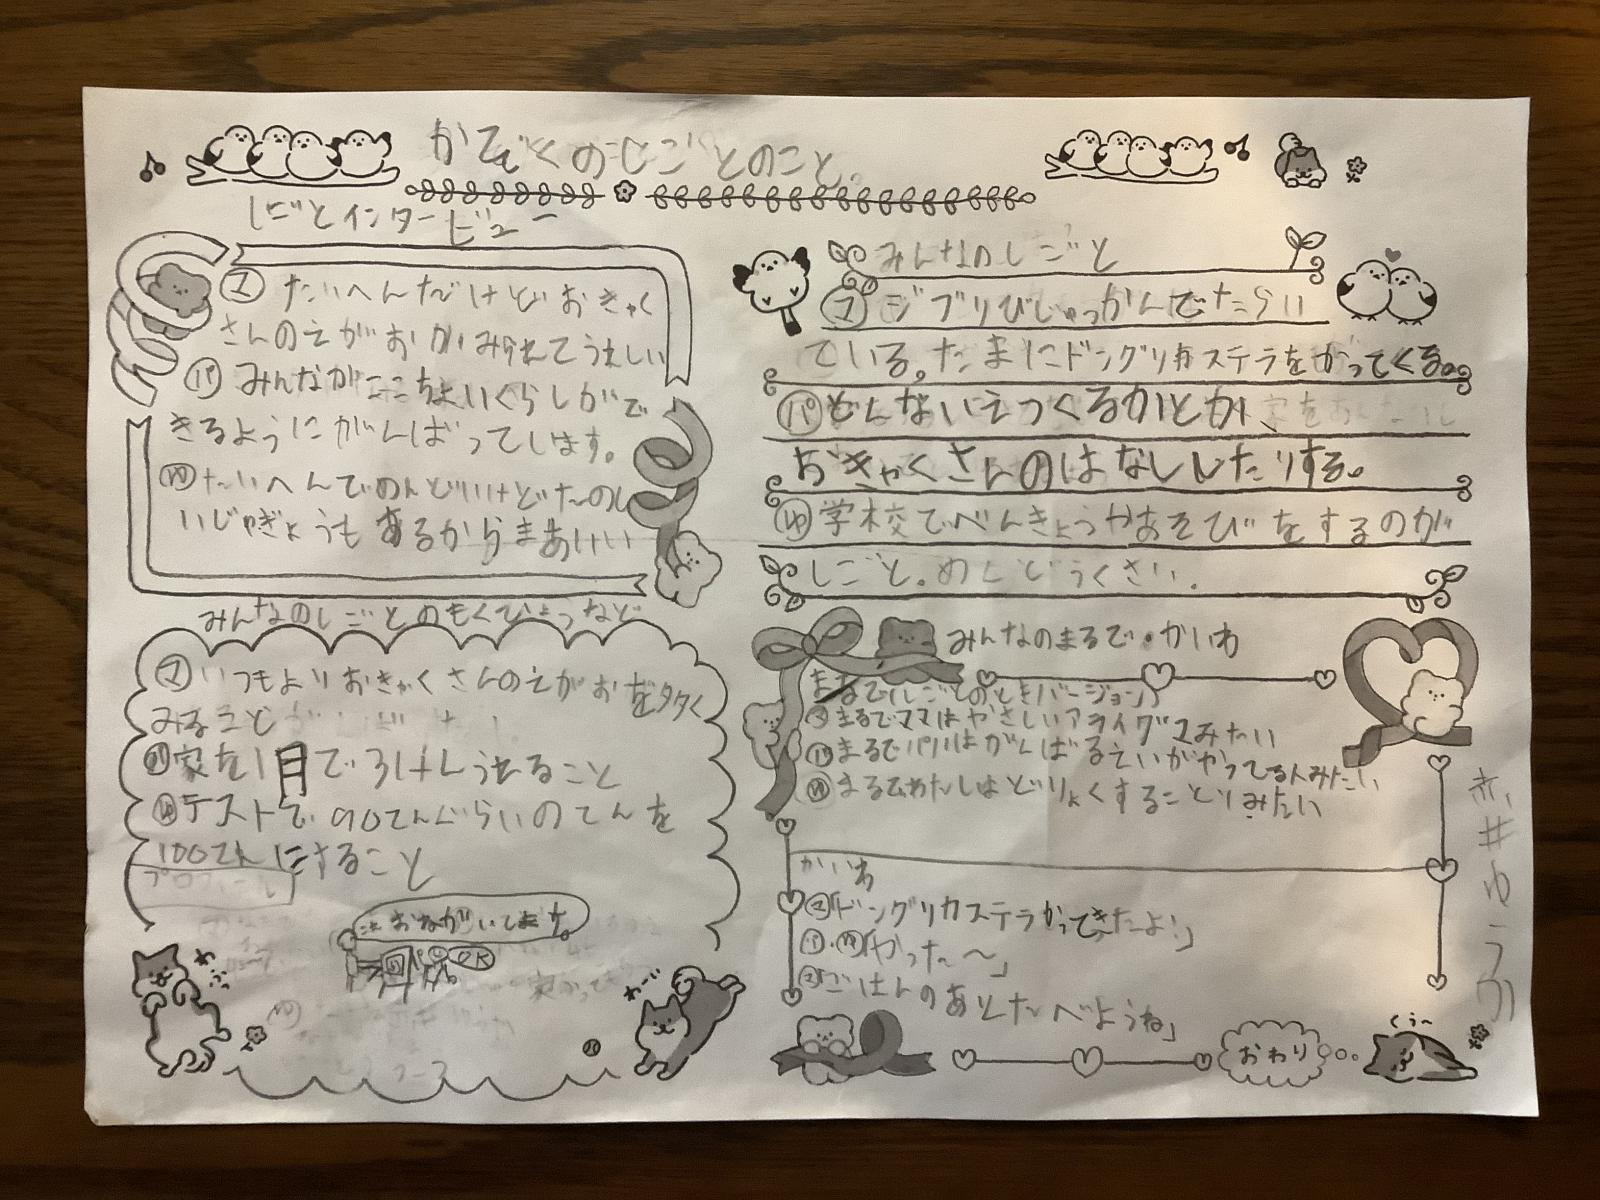 かぞくのしごとのこと。
しごとインタービュー
㋮ たいへんだけどおきゃく
さんのえがおがみられてうれしい
㋩゚ みんながここちよいくらしがで
きるようにがんばってします。
ゆ たいへんでめんどいけどたのし
いじゅぎょうもあるからまあいい
みんなのしごとのもくひょうなど
㋮ いつもよりおきゃくさんのえがおを多く
みること
㋩゚ 家を1日で3けんうれること
ゆ テストで90てんぐらいのてんを
100てんにすること
おねがいします。
OK
わふっ
わーい
みんなのしごと
㋮ ジブリびじゅつかんではたらい
ている。たまにドングリカステラをかってくる。
㋩゚ どんないえつくるかとか、
おきゃくさんのはなししたりする。
ゆ 学校でべんきょうやあそびをするのが
しごと。めんどうくさい.
みんなのまるで・かいわ
まるで(しごとのときバージョン)
㋮ まるでママはやさしいアライグマみたい
㋩゚ まるでパパはがんばるえいがやってる人みたい
ゆ まるでわたしはどりょくすることりみたい
かいわ
㋮「ドングリカステラかってきたよ!」
㋩゚・ゆ「やった〜」
㋮「ごはんのあとたべようね」
くぅ〜
おわり